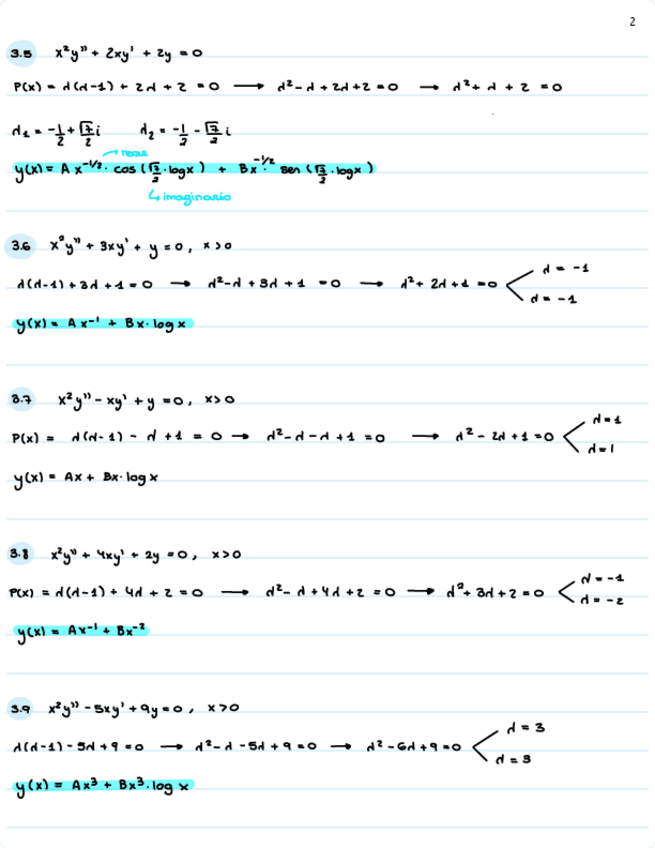 2
3.5 x²y'' + 2xy' + 2y = 0
P(x) = λ(λ-1) + 2λ + 2 = 0 → λ²-λ + 2λ+2 = 0 → λ²+ λ + 2 = 0
λ₁ = -1/2 + √7/2 i λ₂ = -1/2 - √7/2 i
→ real
y(x) = A x^-1/2 · cos (√7/2 · log x) + Bx^-1/2 · sen (√7/2 · log x)
↳ imaginario
3.6 x²y'' + 3xy' + y = 0, x>0
λ(λ-1) + 3λ + 1 = 0 → λ²-λ + 3λ + 1 = 0 → λ²+ 2λ + 1 = 0 < λ = -1
λ = -1
y(x) = Ax⁻¹ + Bx· log x
3.7 x²y'' - xy' + y = 0, x>0
P(x) = λ(λ-1) - λ + 1 = 0 → λ²-λ-λ +1 = 0 → λ² - 2λ + 1 = 0 < λ = 1
λ = 1
y(x) = Ax + Bx· log x
3.8 x²y'' + 4xy' + 2y = 0, x>0
P(x) = λ(λ-1) + 4λ + 2 = 0 → λ²- λ + 4λ + 2 = 0 → λ²+ 3λ + 2 = 0 < λ = -1
λ = -2
y(x) = Ax⁻¹ + Bx⁻²
3.9 x²y'' - 5xy' + 9y = 0, x>0
λ(λ-1) - 5λ + 9 = 0 → λ²- λ - 5λ + 9 = 0 → λ² - 6λ + 9 = 0 < λ = 3
λ = 3
y(x) = Ax³ + Bx³· log x